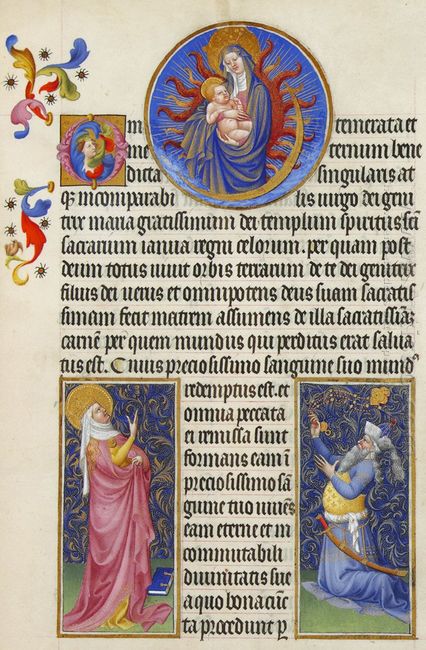 O in temerata et
ine ternum bene
dicta singularis at
q̃ incomparabi lis uirgo dei geni
trix maria gratissimum dei templum spiritus sc̃i
sacrarium ianua regni celorum. per quam post
deum totus uiuit orbis terrarum de te dei genitrix
filius dei uerus et omnipotens deus suam sacratis
simam fecit matrem assumens de illa sacratissimã
carnẽ per quem mundus qui perditus erat salua
tus est. Cuius preciosissimo sanguine suo mundꝰ
redemptus est. et
omnia peccata
ei remissa sunt
formans eam i
preciosissimo sã
guine tuo
eam eterne et in
commutabili
diuinitatis sue
a quo bona cũc
ta procedunt p̱